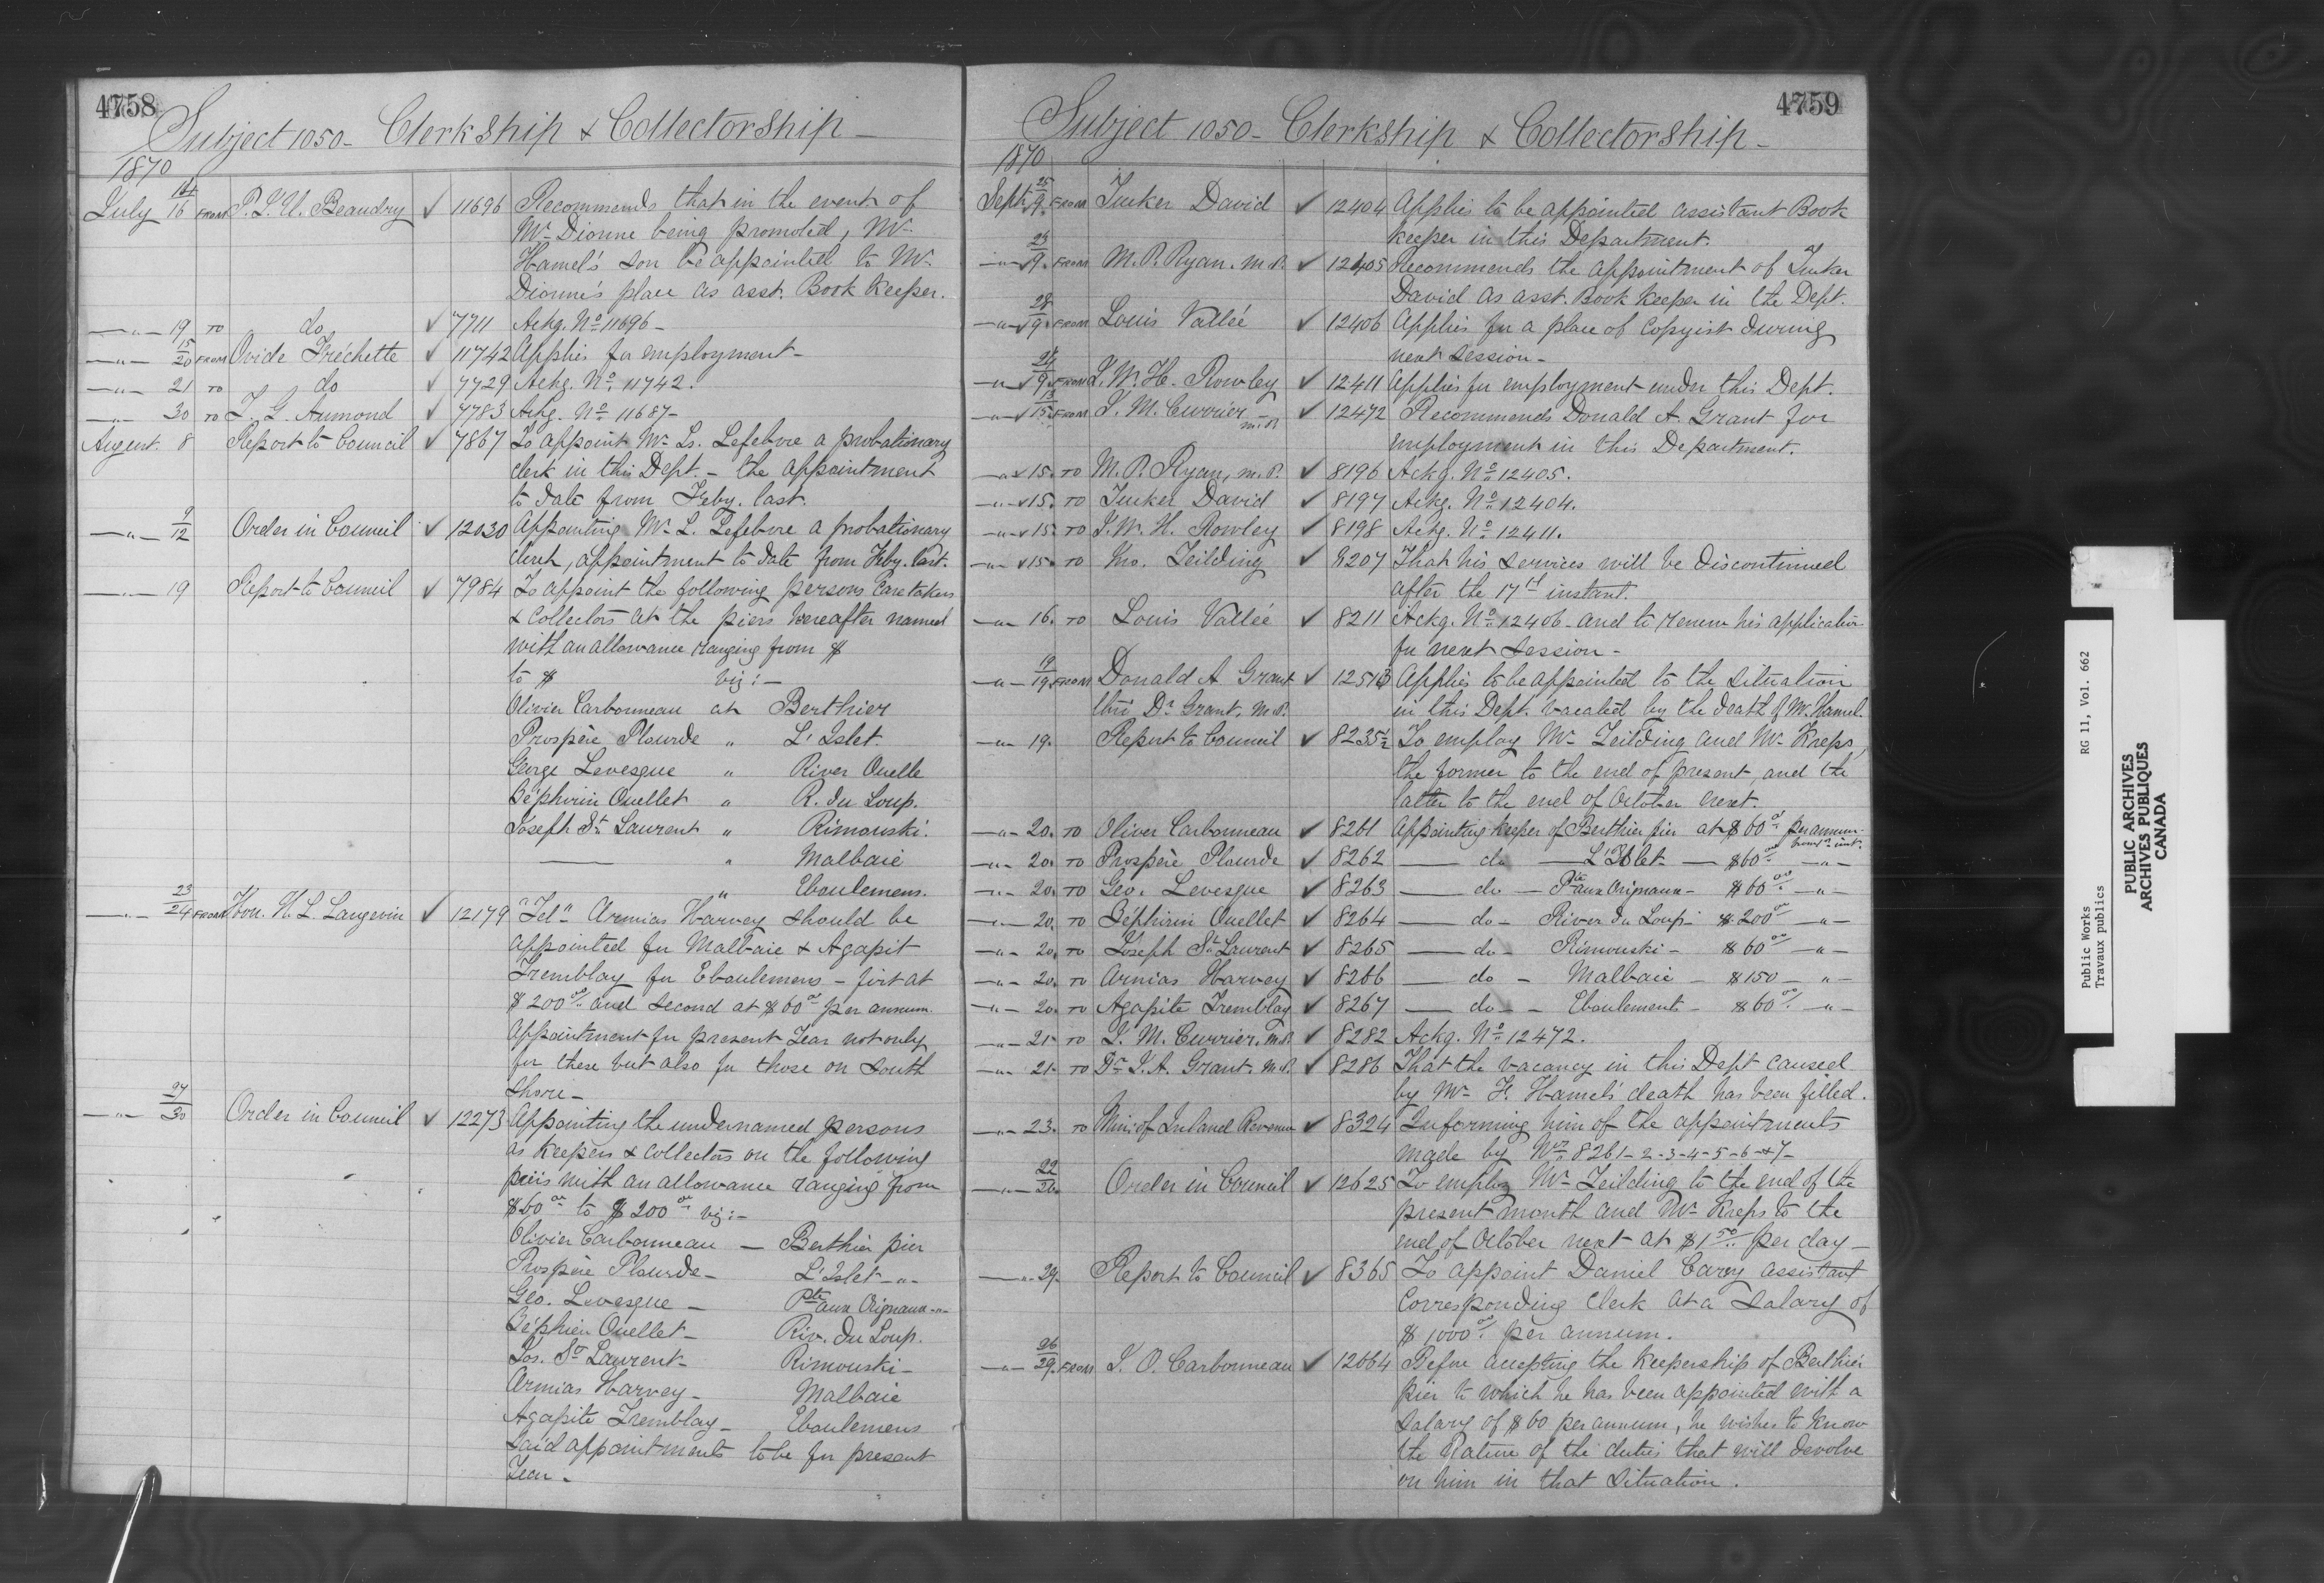 4758
Subject 1050 - Clerkship & Collectorship -
1870
July 14/16 FROM P. L. U. Beaudry ✓ 11696 Recommends that in the event of
Mr Dionne being promoted, Mr
Hamel's son be appointed to Mr.
Dionne's place as asst. Book Keeper.
—"— 19 TO do ✓ 7711 Ackg. No 11696 -
—"— 15/20 FROM Ovide Fréchette ✓ 11742 Applies for employment -
—"— 21 TO do ✓ 7729 Ackg. No 11742.
—"— 30 TO Aumond ✓ 7783 Ackg. No 11687 -
August. 8 Report to Council ✓ 7867 To appoint Mr Ls. Lefebvre a probationary
clerk in this Dept. - the appointment
to date from Feby. last.
—"— 9/12 Order in Council ✓ 12030 Appointing Mr L. Lefebvre a probationary
clerk, appointment to date from Feby. last.
—"— 19 Report to Council ✓ 7984 To appoint the following persons Caretakers
& Collectors at the piers hereafter named
with an allowance ranging from $
to $ viz: -
Olivier Carbonneau at Berthier
Prospère Plourde " L'Islet.
George Levesque " River Ouelle
Zéphirin Ouellet " R. du Loup.
Joseph St. Laurent " Rimouski.
—— " Malbaie
" Eboulemens.
—"— 23/24 FROM Hon. H. L. Langevin ✓ 12179 "Tel" Armias Harvey should be
appointed for Malbaie & Agapit
Tremblay for Eboulemens - first at
$200 00/ and second at $60 00 per annum.
Appointment for present Year not only
for these but also for those on South
Shore -
—"— 27/30 Order in Council ✓ 12273 Appointing the undernamed persons
as Keepers & Collectors on the following
piers with an allowance ranging from
$60 00 to $200 00 viz: -
Olivier Carbonneau — Berthier pier
Prospère Plourde - L'Islet —"—
Geo. Levesque — Pte aux Orignaux —"—
Zéphirin Ouellet - Riv. du Loup.
Jos. St Laurent - Rimouski -
Armias Harvey - Malbaie
Agapite Tremblay - Eboulemens
Said appointments to be for present
Year -
4759
Subject 1050 - Clerkship & Collectorship -
1870
Sept. 9. FROM Tucker David ✓ 12404 Applies to be appointed assistant Book
keeper in this Department.
—"— 9. FROM M. P. Ryan. M.P. ✓ 12405 Recommends the appointment of Tucker
David as asst. Book Keeper in the Dept.
—"— 9. FROM Louis Vallée ✓ 12406 Applies for a place of Copyist during
next session -
—"— 9. FROM J. W. H. Rowley ✓ 12411 Applies for employment under this Dept.
—"— 13/15. FROM J. M. Currier - M.P. ✓ 12472 Recommends Donald A. Grant for
employment in this Department.
—"— 15. TO M. P. Ryan, M.P. ✓ 8196 Ackg. No 12405.
—"— 15. TO Tucker David ✓ 8197 Ackg. No 12404.
—"— 15. TO J. W. H. Rowley ✓ 8198 Ackg. No 12411.
—"— 15. TO Jno. Teilding ✓ 8207 That his services will be discontinued
after the 17th instant.
—"— 16. TO Louis Vallée ✓ 8211 Ackg. No 12406 - and to renew his application
for next Session -
—"— 19/19. FROM Donald A Grant ✓ 12513 Applies to be appointed to the situation
thro' Dr Grant, M.P. in this Dept. vacated by the death of Mr. Hamel.
—"— 19. Report to Council ✓ 8235½ To employ Mr Teilding and Mr Kreps,
the former to the end of present, and the
latter to the end of October next.
—"— 20. TO Oliver Carbonneau ✓ 8261 Appointing keeper of Berthier pier at $60 00 per annum -
—"— 20. TO Prospère Plourde ✓ 8262 — do — L'Islet — $60 00 —"—
—"— 20. TO Geo. Levesque ✓ 8263 — do — Pte aux Orignaux - $60 00 —"—
—"— 20. TO Zéphirin Ouellet ✓ 8264 — do - River du Loup - $200 00 —"—
—"— 20. TO Joseph St. Laurent ✓ 8265 — do - Rimouski - $60 00 —"—
—"— 20. TO Armias Harvey ✓ 8266 — do - Malbaie - $150 — "—
—"— 20. TO Agapite Tremblay ✓ 8267 — do - Eboulements - $60 00/ —"—
—"— 21. TO J. M. Currier, M.P. ✓ 8282 Ackg. No 12472.
—"— 21. TO Dr J. A. Grant. M.P. ✓ 8286 That the vacancy in this Dept caused
by Mr F. Hamel's death has been filled.
—"— 23. TO Min: of Inland Revenue ✓ 8324 Informing him of the appointments
made by Nos 8261 - 2 - 3 - 4 - 5 - 6 - & 7 -
—"— 22/26. Order in Council ✓ 12625 To employ Mr Teilding to the end of the
present month and Mr Kreps to the
end of October next at $1 50/ per day -
—"— 29. Report to Council ✓ 8365 To appoint Daniel Carey assistant
Corresponding Clerk at a Salary of
$1000 00/ per annum.
—"— 26/29. FROM J. O. Carbonneau ✓ 12664 Before accepting the keepership of Berthier
pier to which he has been appointed with a
salary of $60 per annum, he wishes to know
the nature of the duties that will devolve
on him in that situation.
Public Works RG 11, Vol. 662
Travaux publics
PUBLIC ARCHIVES
ARCHIVES PUBLIQUES
CANADA